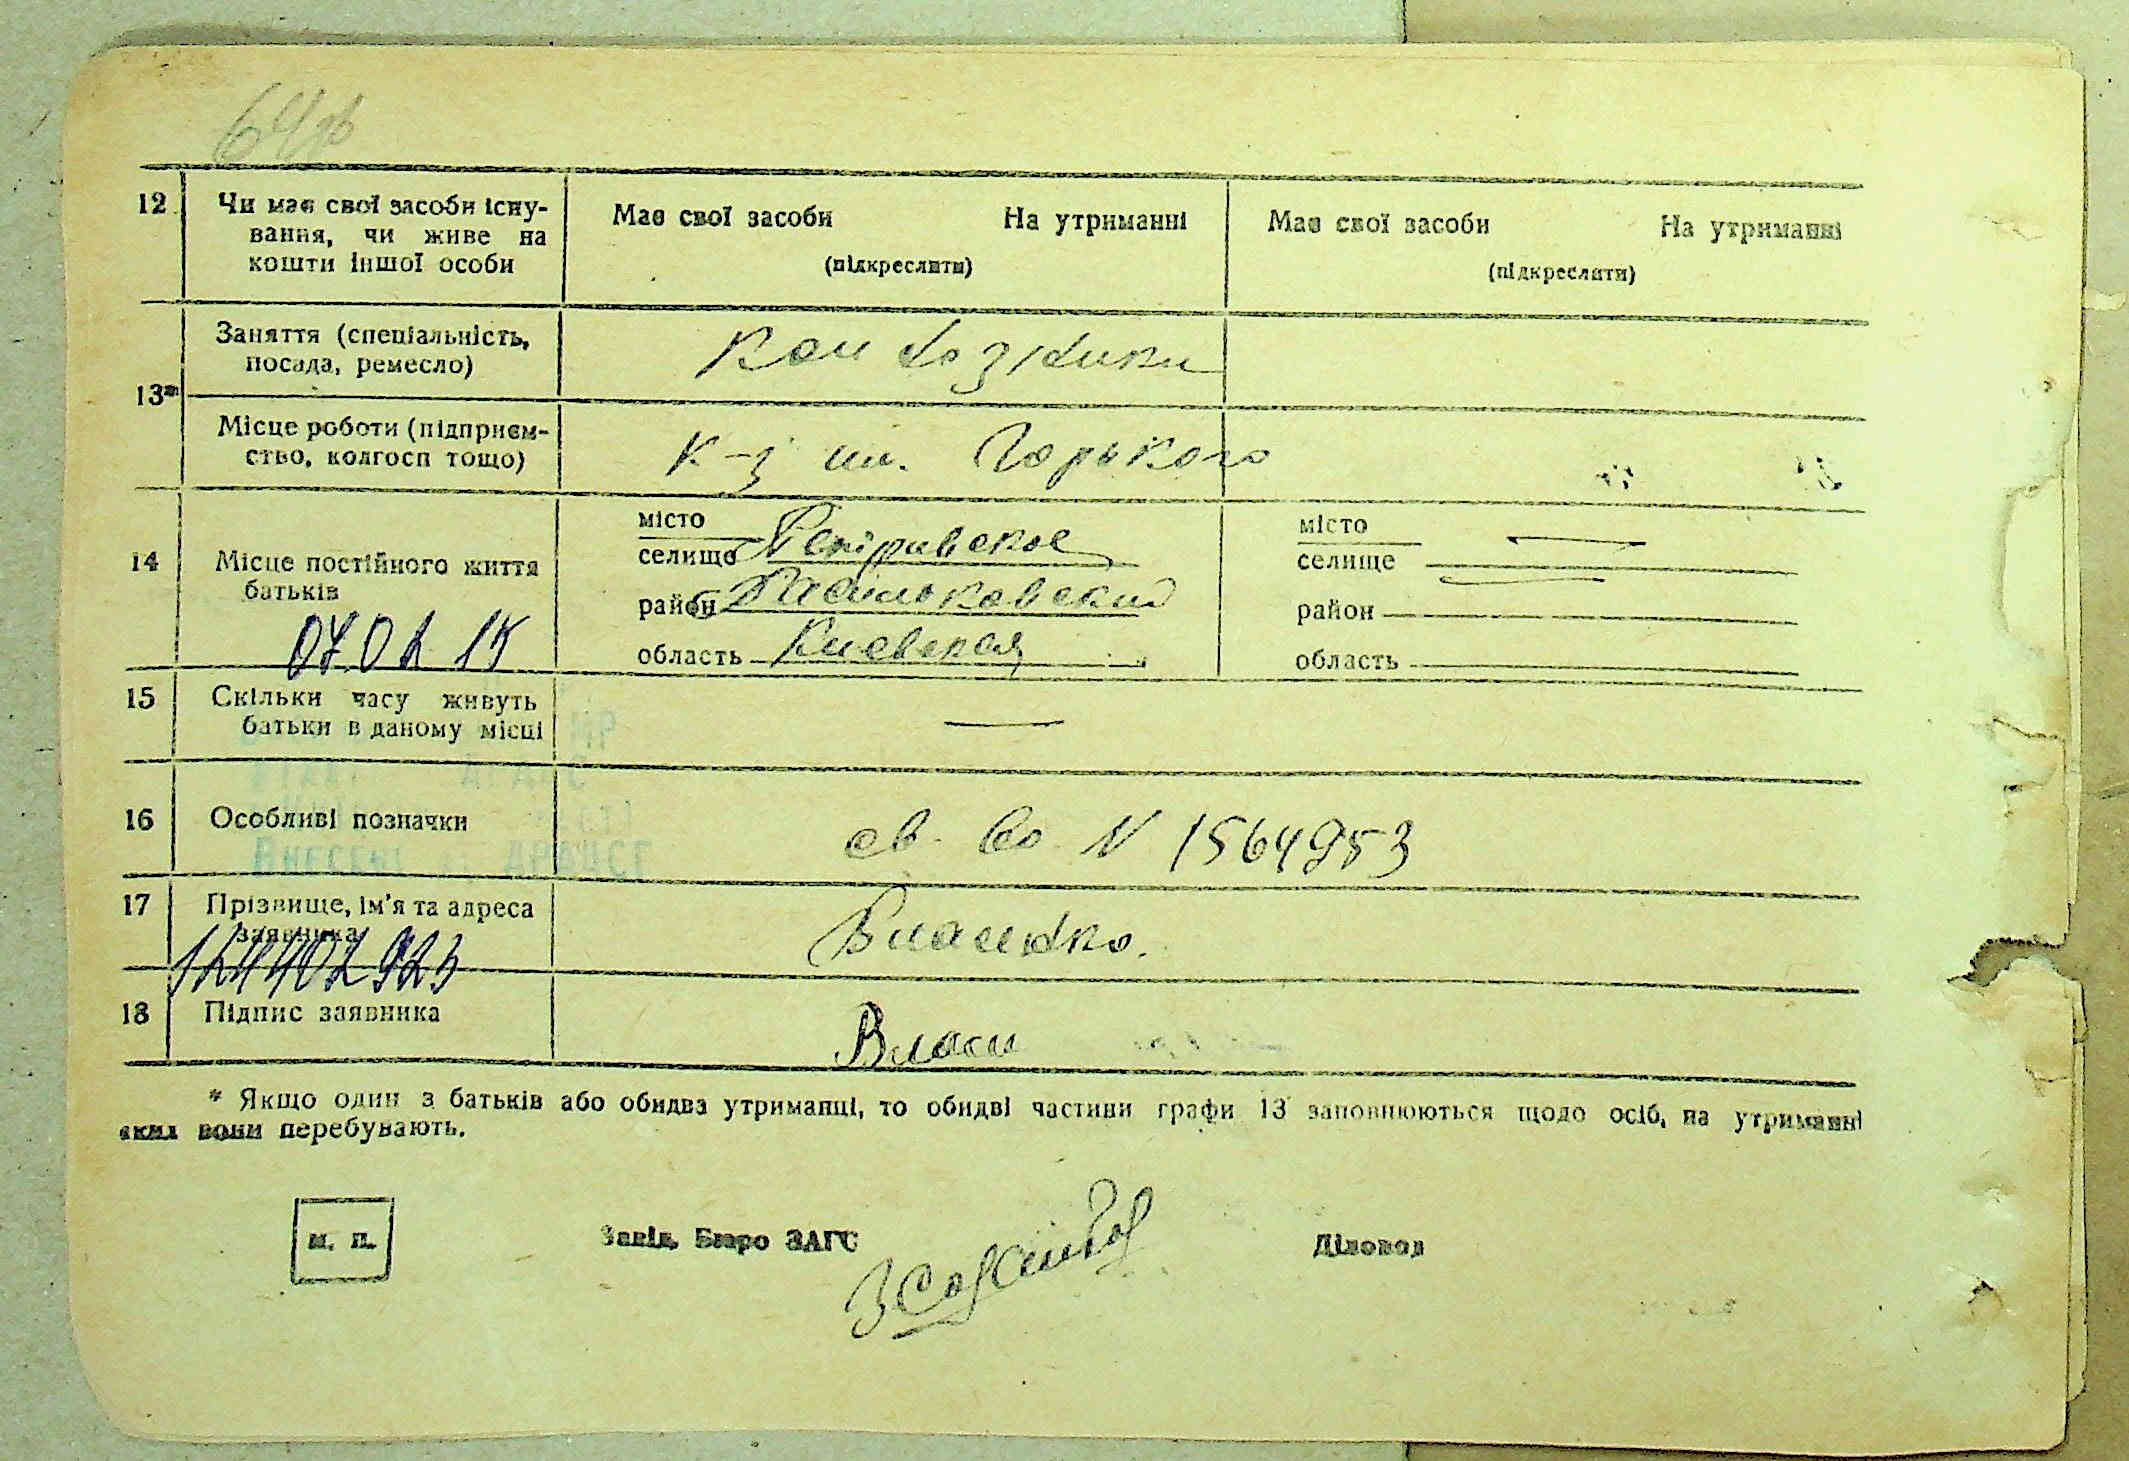 12 Чи має свої засоби існу-
вання, чи живе на
кошти іншої особи
Має свої засоби На утриманні
(підкреслити)
Має свої засоби На утриманні
(підкреслити)
13*
Заняття (спеціальність,
посада, ремесло)
Колхозники
Місце роботи (підприєм-
ство, колгосп тощо)
к-з им. Горького
14 Місце постійного життя
батьків
07.02 15
місто
селище
район
область Киевская
місто
селище
район
область
15 Скільки часу живуть
батьки в даному місці
—
16 Особливі позначки
св. во N 1564953
Внесено ДРАЦСГ
17 Прізвище, ім'я та адреса
заявника
Власенко.
18 Підпис заявника
Власи
* Якщо один з батьків або обидва утриманці, то обидві частини графи 13 заповнюються щодо осіб, на утриманні
яких вони перебувають.
м. п.
Завід. Бюро ЗАГС
Діловод